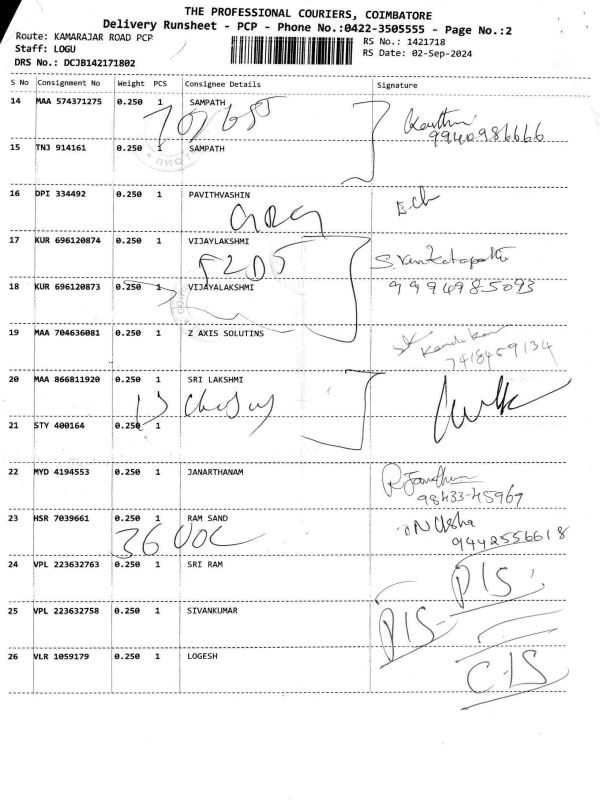 THE PROFESSIONAL COURIERS, COIMBATORE
Delivery Runsheet - PCP - Phone No.:0422-3505555 - Page No.:2
Route: KAMARAJAR ROAD PCP
RS No.: 1421718
Staff: LOGU
RS Date: 02-Sep-2024
DRS No.: DCJB142171802
S No Consignment No Weight PCS Consignee Details Signature
14 MAA 574371275 0.250 1 SAMPATH
9940986666
15 TNJ 914161 0.250 1 SAMPATH
16 DPI 334492 0.250 1 PAVITHVASHIN
17 KUR 696120874 0.250 1 VIJAYLAKSHMI
S. Venkatapathi
18 KUR 696120873 0.250 1 VIJAYALAKSHMI
9994985093
19 MAA 704636081 0.250 1 Z AXIS SOLUTINS
7418459134
20 MAA 866811920 0.250 1 SRI LAKSHMI
21 STY 400164 0.250 1
22 MYD 4194553 0.250 1 JANARTHANAM
98433-45967
23 HSR 7039661 0.250 1 RAM SAND
N Usha
9442556618
24 VPL 223632763 0.250 1 SRI RAM
D/S
25 VPL 223632758 0.250 1 SIVANKUMAR
D/S
26 VLR 1059179 0.250 1 LOGESH